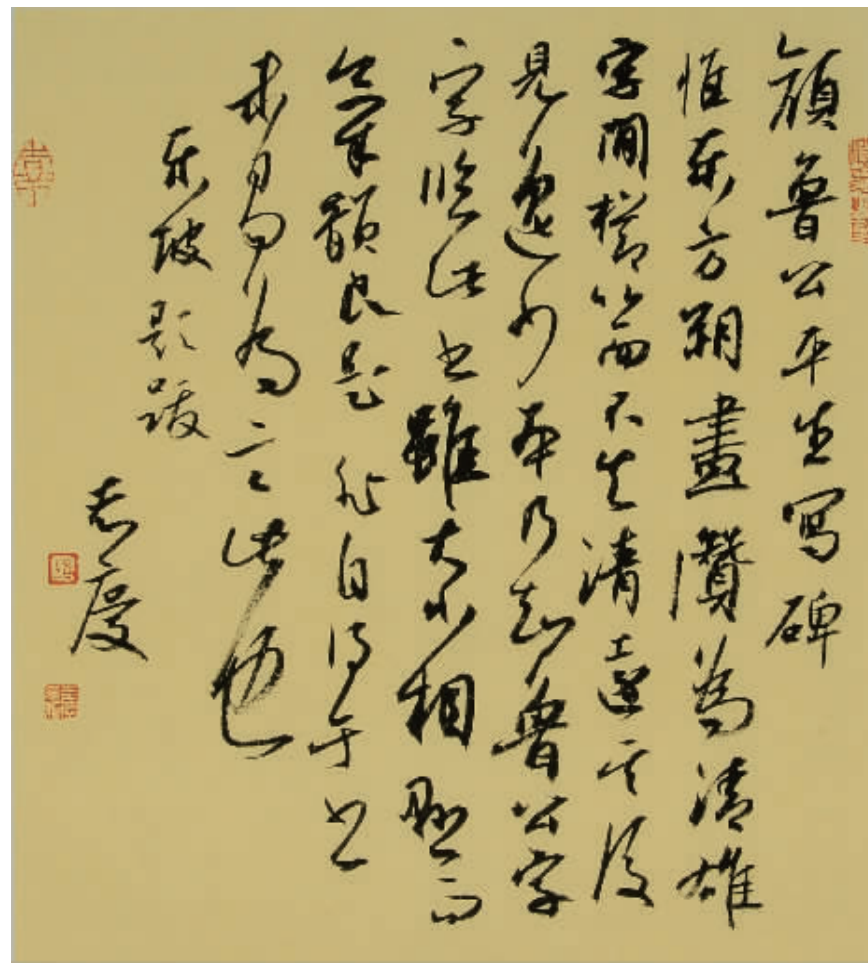 顔魯公平生寫碑
惟东方朔畫讚為清雄
字間櫛比而不失清遠其後
見逸少本乃知魯公字
字臨此書雖大小相懸而
氣韻良是非自得于書
未易為言此也
东坡題跋
志慶